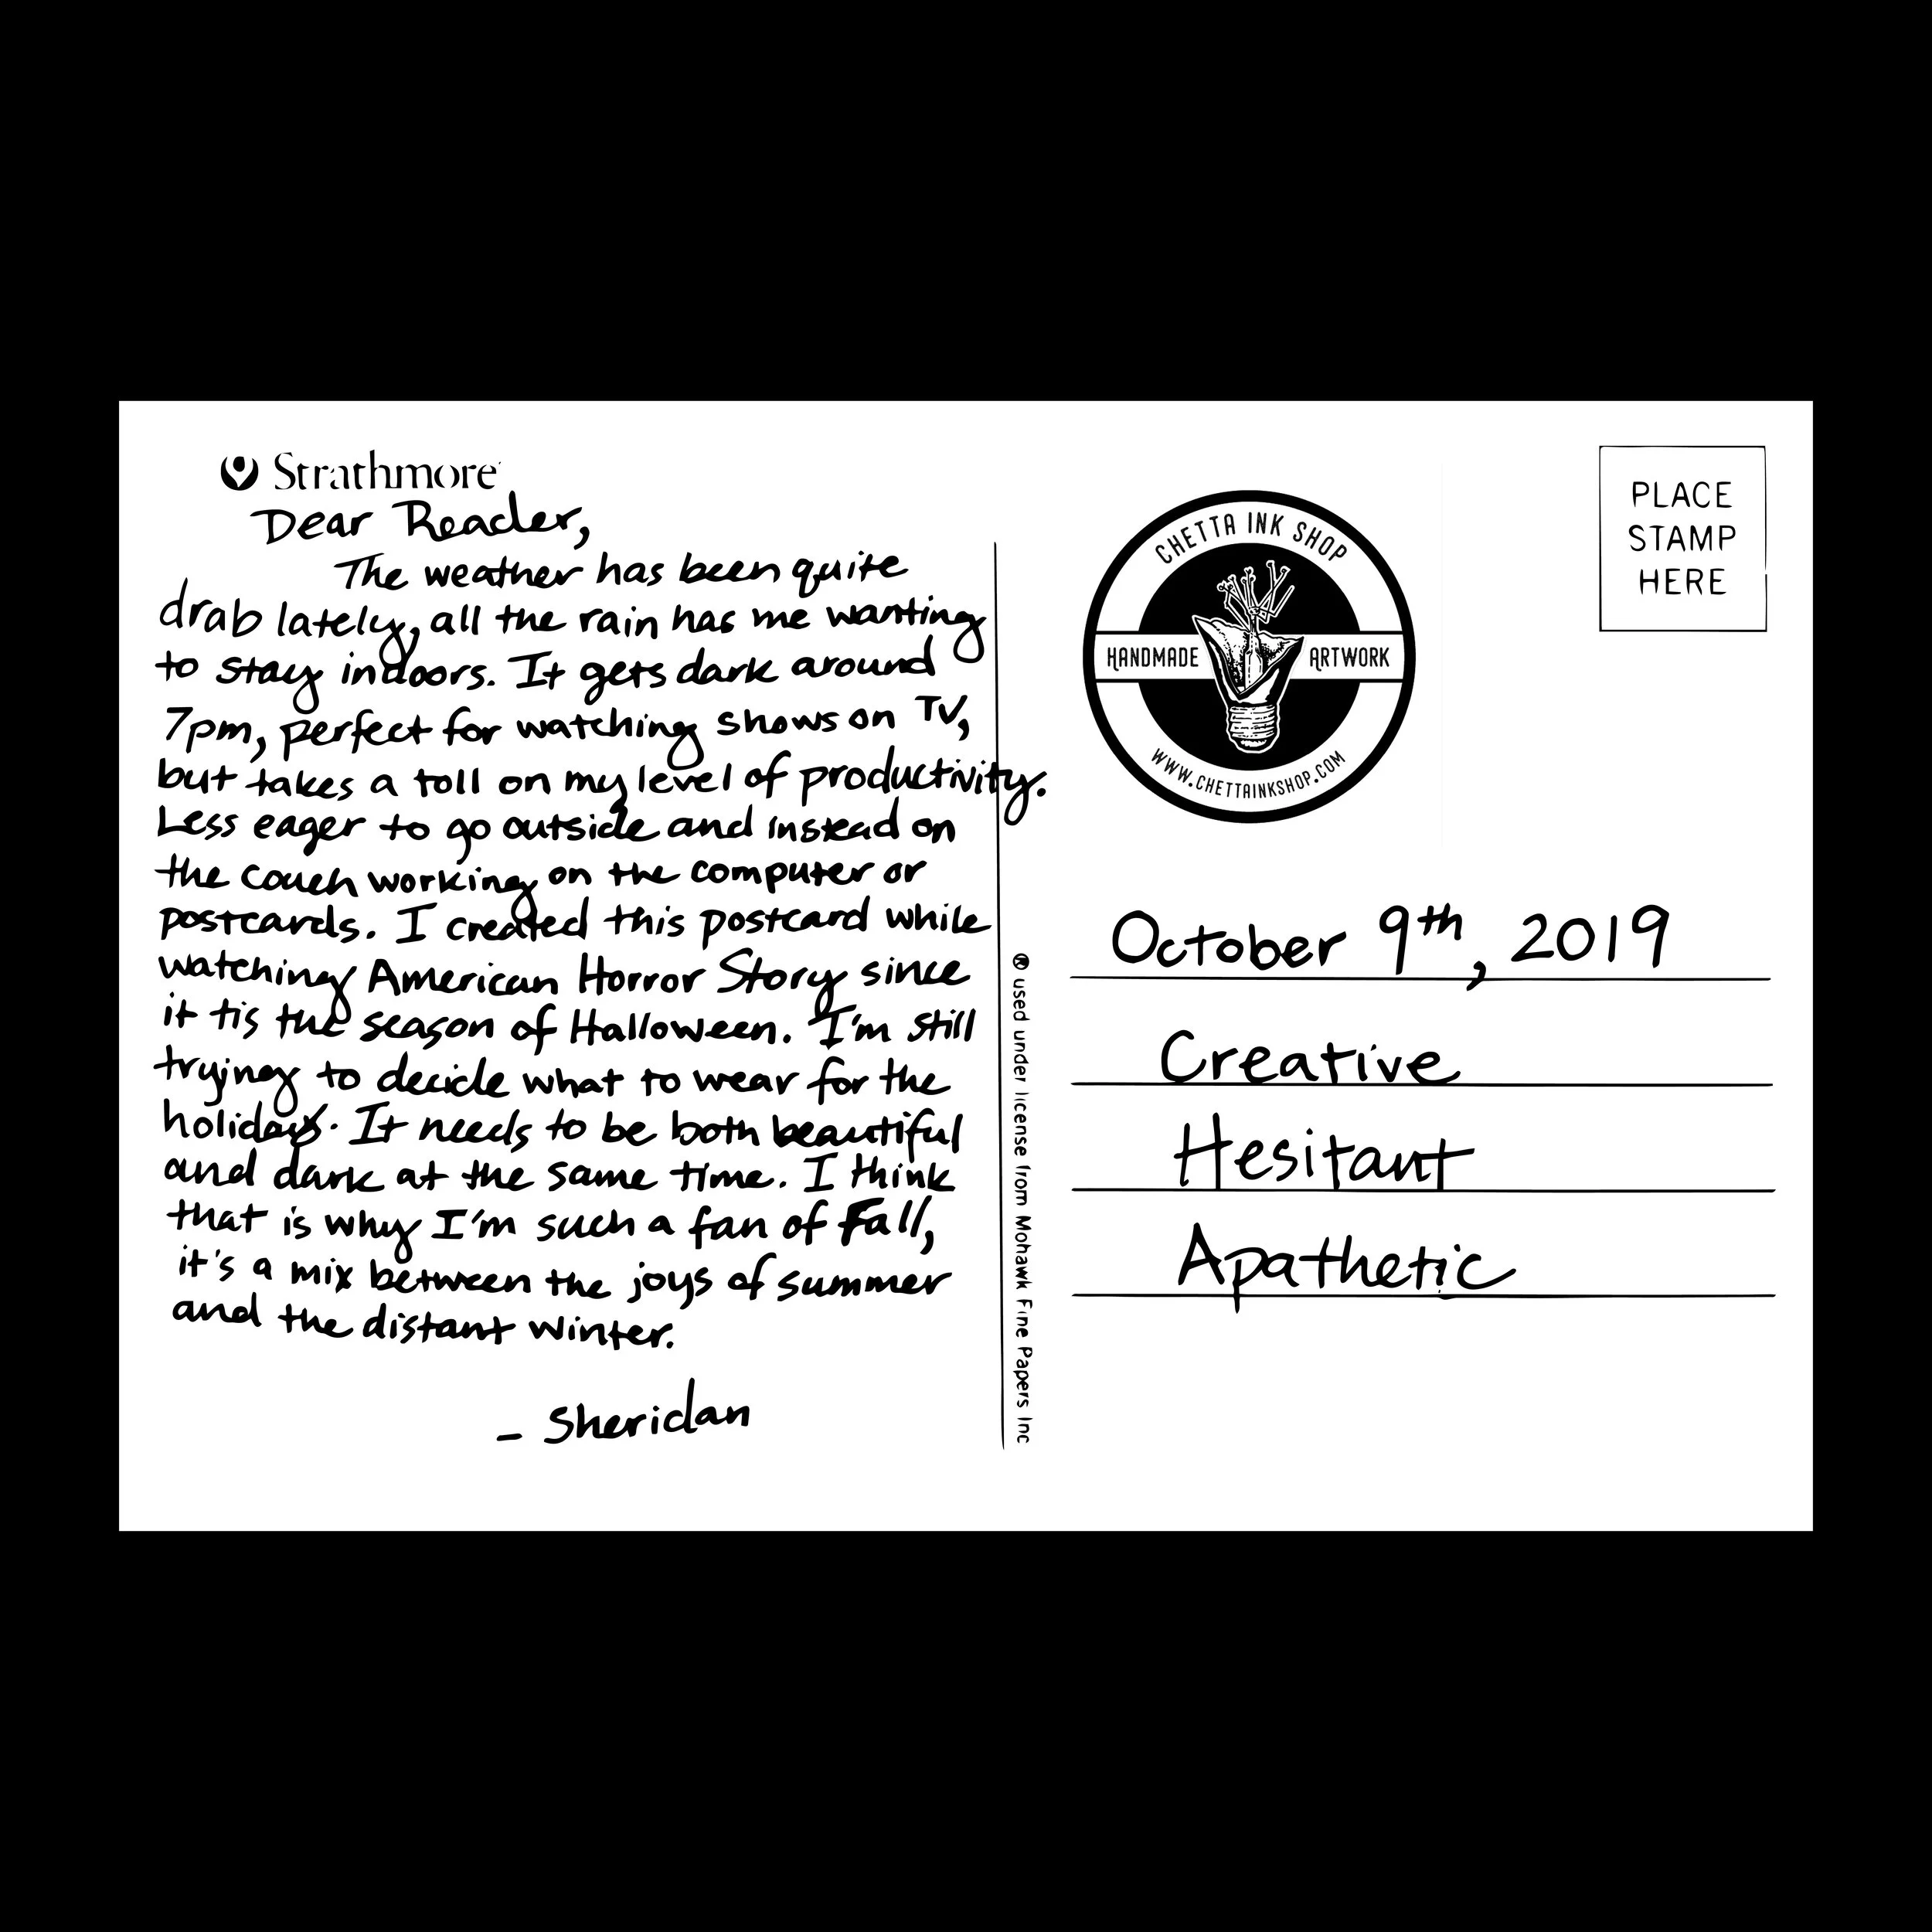 Strathmore
Dear Reader,
The weather has been quite
drab lately, all the rain has me wanting
to stay indoors. It gets dark around
7pm, perfect for watching shows on TV,
but takes a toll on my level of productivity.
Less eager to go outside and instead on
the couch working on the computer or
postcards. I created this postcard while
watching American Horror Story since
it tis the season of Halloween. I'm still
trying to decide what to wear for the
holidays. It needs to be both beautiful
and dark at the same time. I think
that is why I'm such a fan of Fall,
it's a mix between the joys of summer
and the distant winter.
- Sheridan
® used under license from Mohawk Fine Papers Inc
CHETTA INK SHOP
HANDMADE ARTWORK
WWW.CHETTAINKSHOP.COM
PLACE
STAMP
HERE
October 9th, 2019
Creative
Hesitant
Apathetic